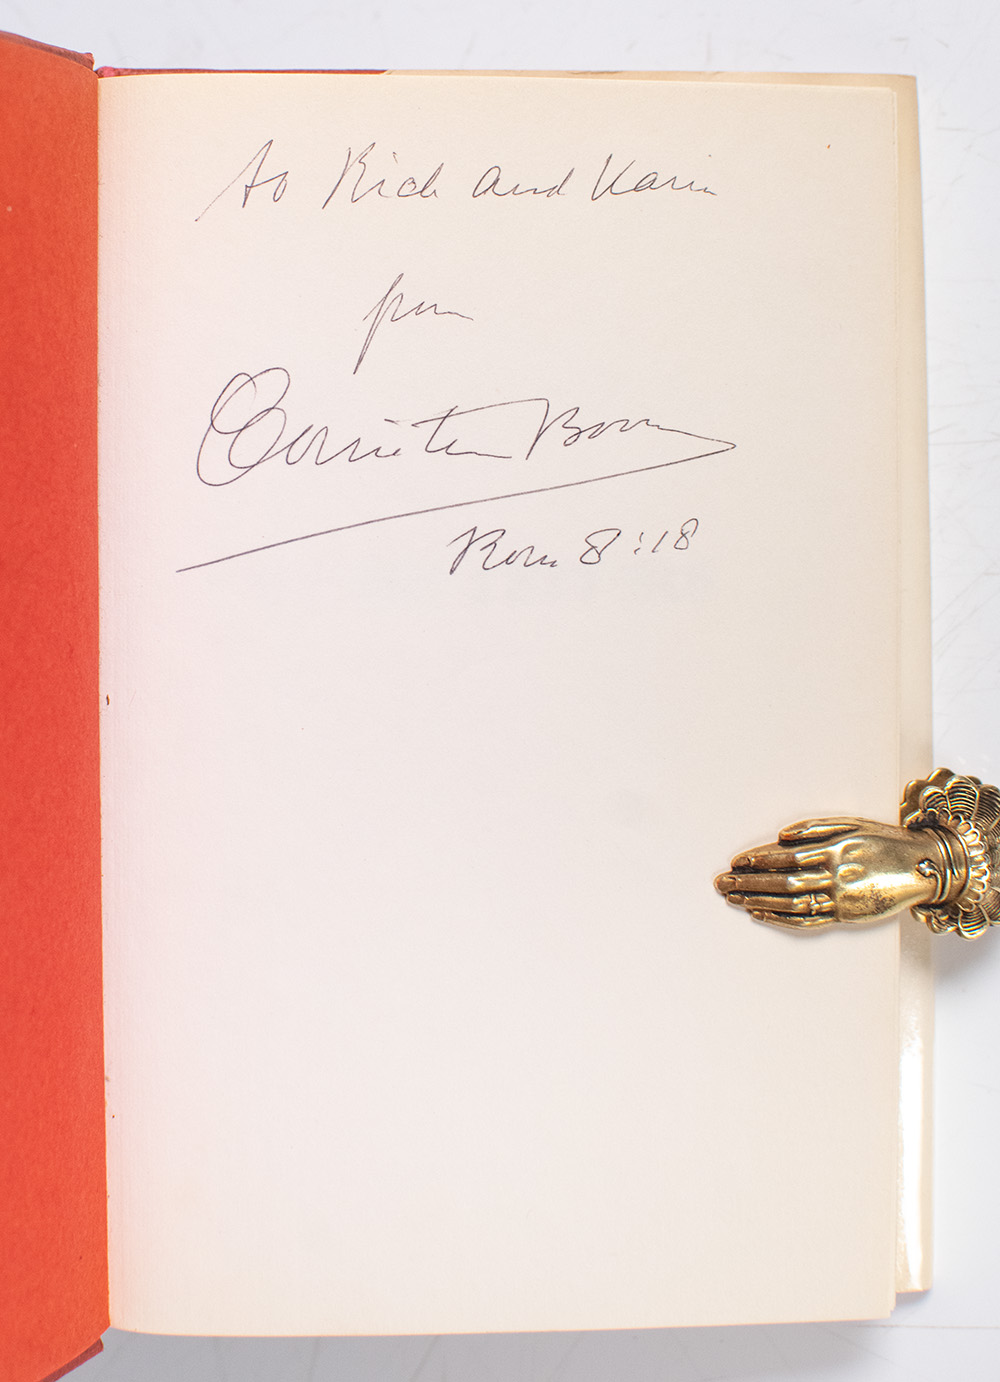 to Rich and Karin
from
Corrie ten Boom
Rom 8:18